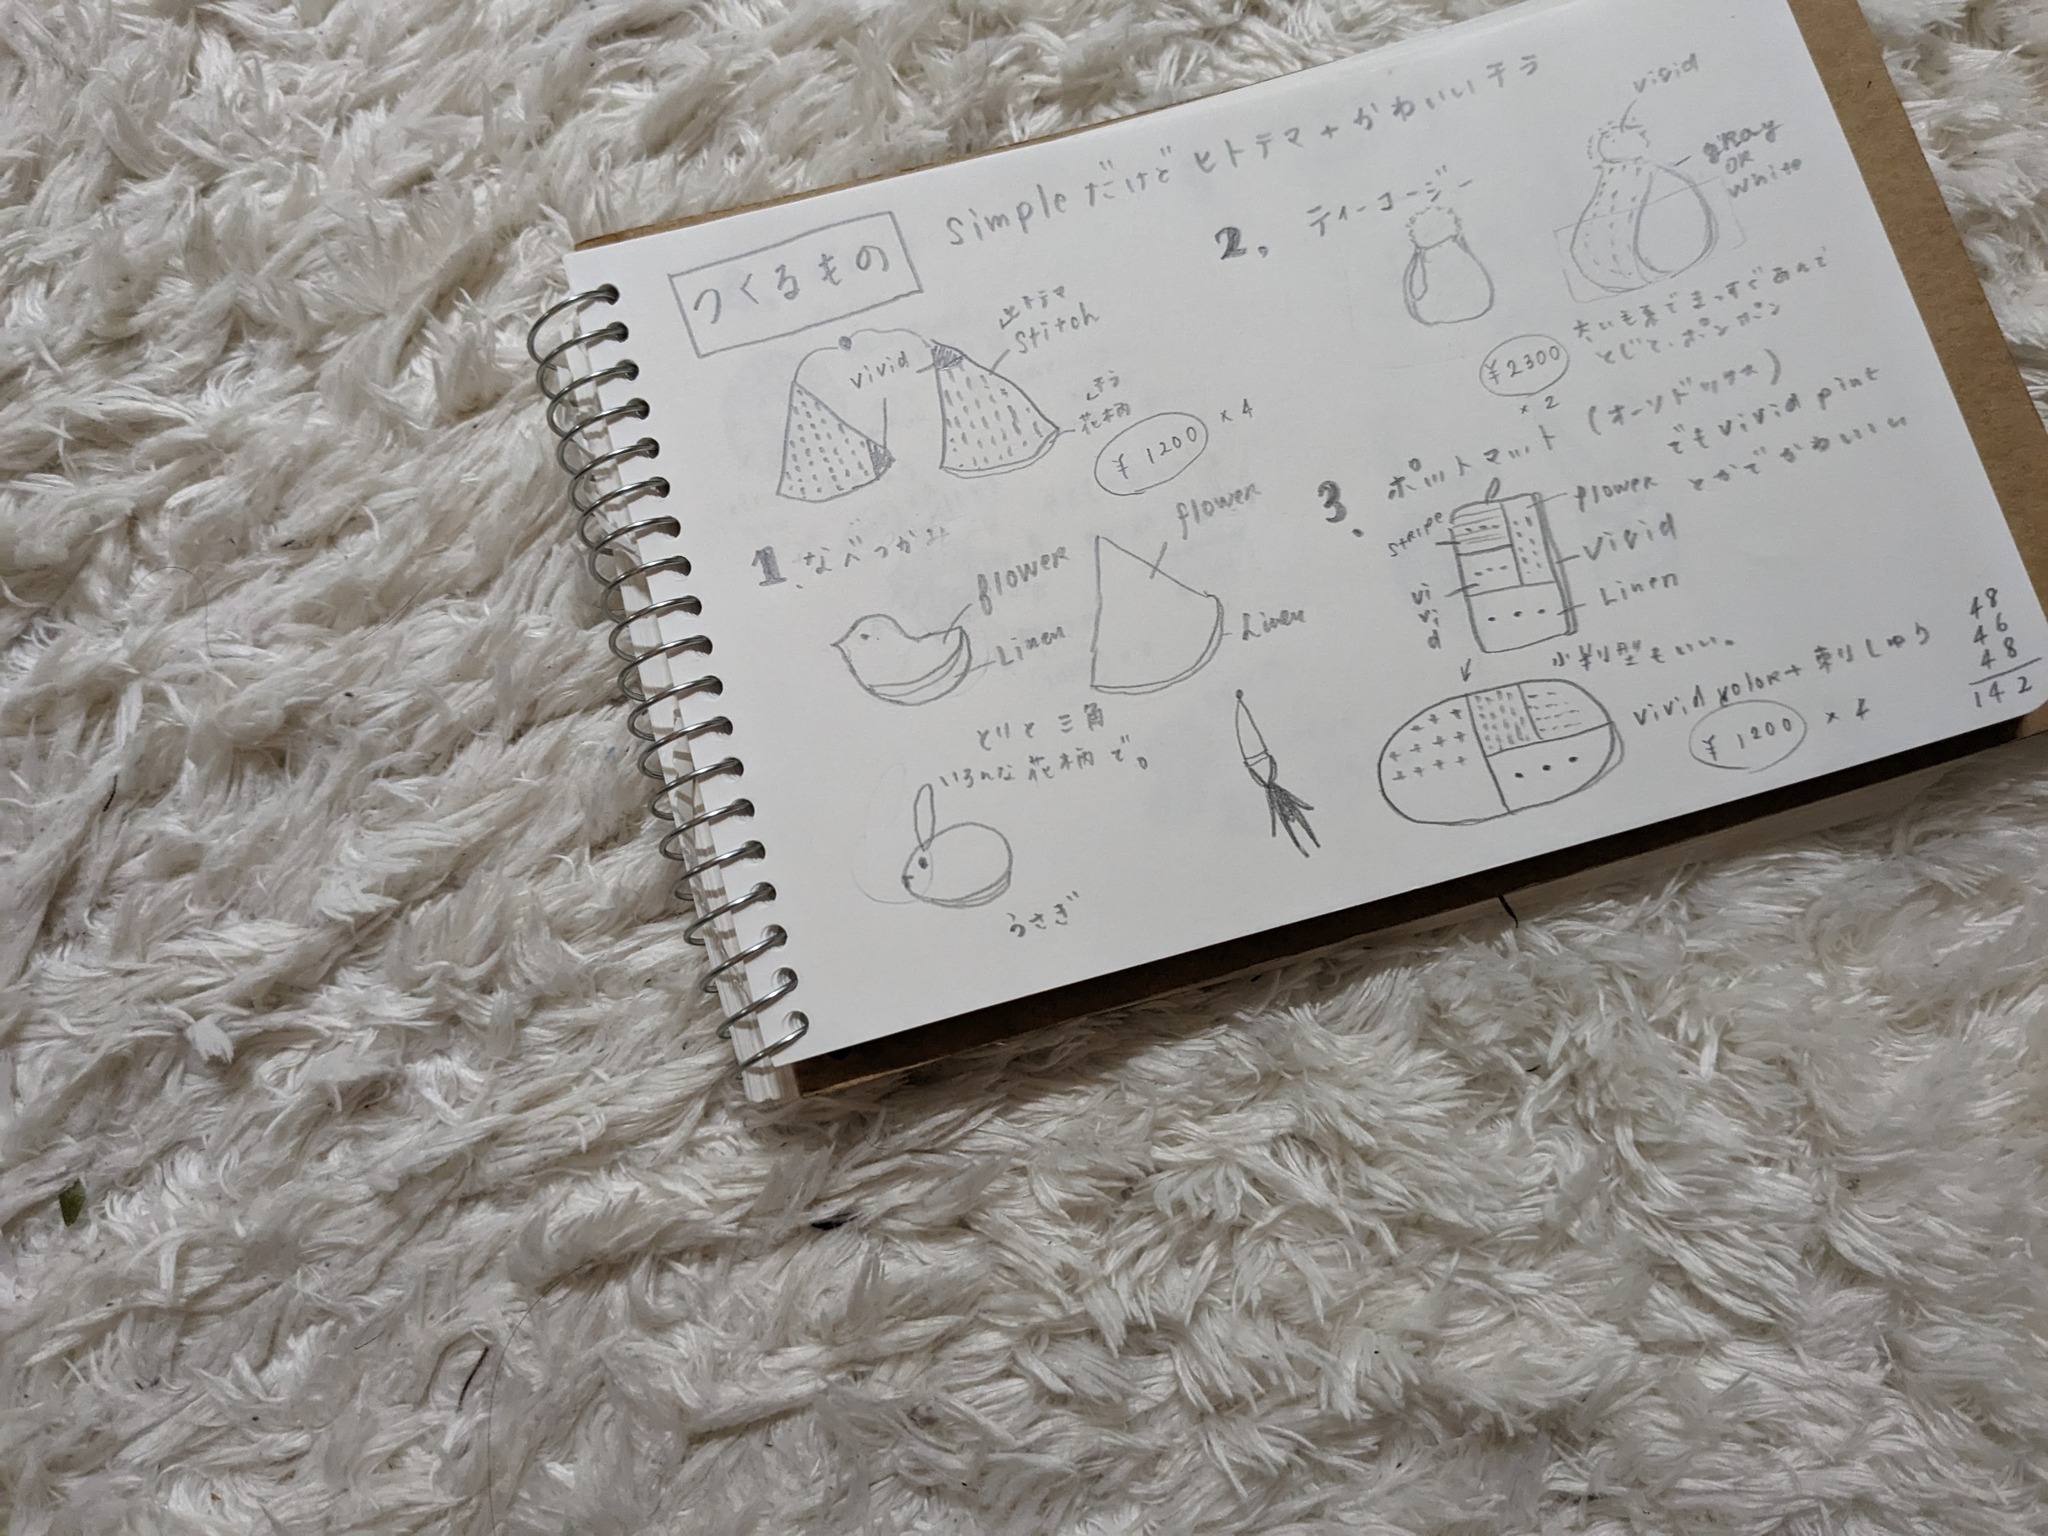 つくるもの
simpleだけどヒトテマ+かわいいチラ
ヒトテマ
stitch
vivid
チラ
花柄
¥1200 ×4
1.なべつかみ
flower
Linen
flower
Linen
とりと三角
いろんな花柄で。
うさぎ
2. ティーコージー
vivid
gray
or
white
太い毛糸でまっすぐあんで
とじて、ポンポン
¥2300
×2
3. ポットマット(オーソドックス)
でもvivid pint
とかでかわいい
stripe
flower
vivid
vi
vi
d
Linen
小判型もいい。
vivid color+刺ししゅう
¥1200 ×4
48
46
48
142